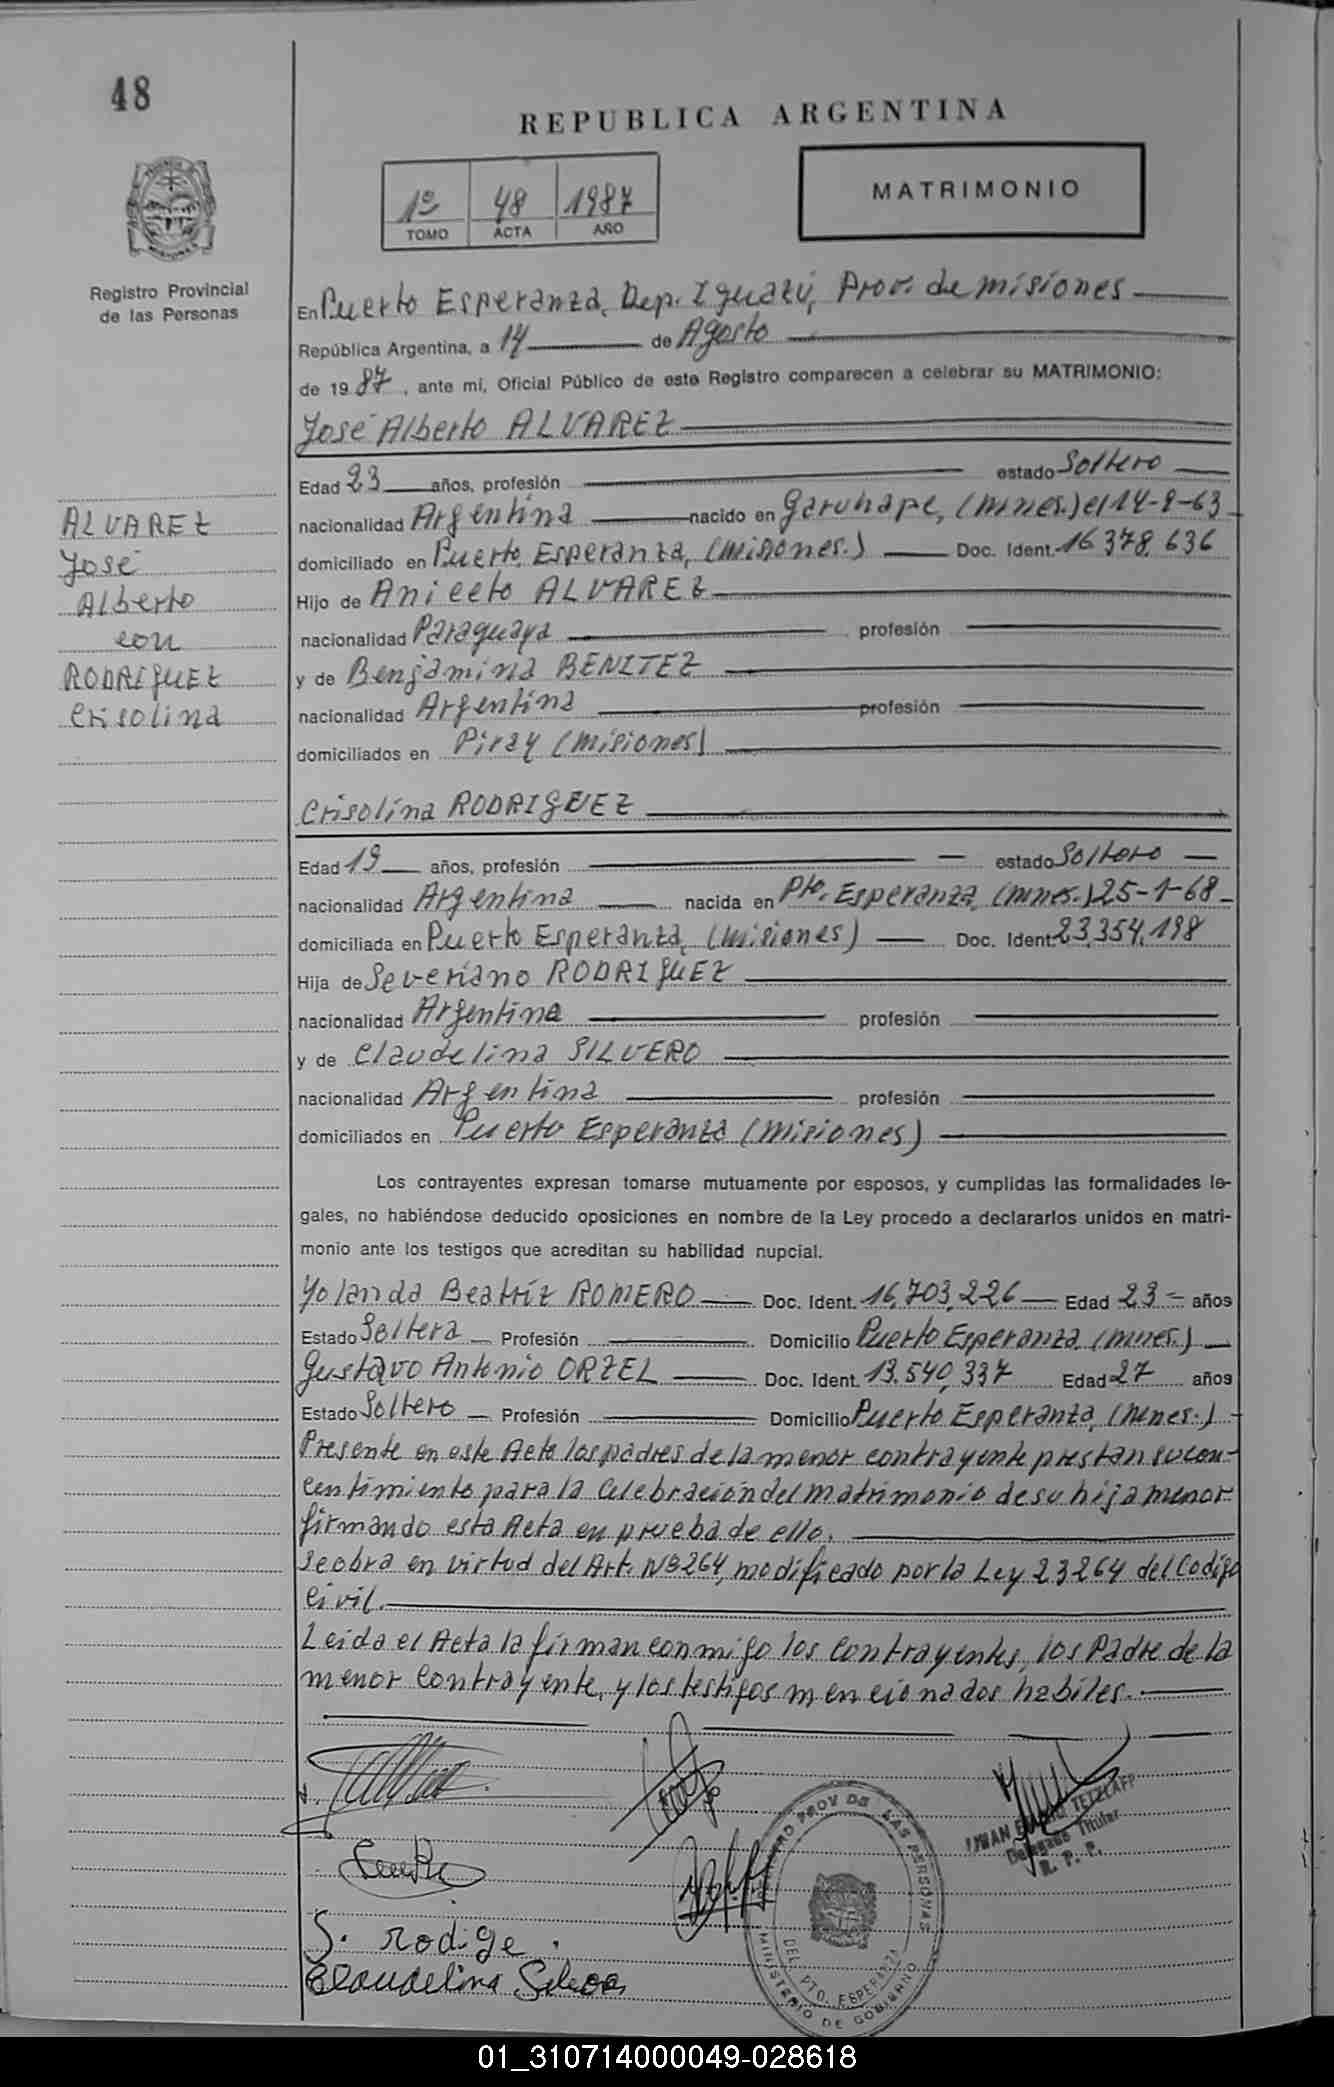 48
REPUBLICA ARGENTINA
1º 48 1987
TOMO ACTA AÑO
MATRIMONIO
Registro Provincial
de las Personas
En Puerto Esperanza, Dep. Iguazú, Prov. de misiones
República Argentina, a 14 de Agosto
de 1987, ante mí, Oficial Público de este Registro comparecen a celebrar su MATRIMONIO:
José Alberto ALVAREZ
Edad 23 años, profesión estado Soltero
nacionalidad Argentina nacido en Garuhape, (mnes.) el 14-8-63
domiciliado en Puerto Esperanza, (misiones.) Doc. Ident. 16 378.636
Hijo de Aniceto ALVAREZ
nacionalidad Paraguaya profesión
y de Benjamina BENITEZ
nacionalidad Argentina profesión
domiciliados en Piray (misiones)
ALVAREZ
José
Alberto
con
RODRIGUEZ
Crisolina
Crisolina RODRIGUEZ
Edad 19 años, profesión estado Soltero
nacionalidad Argentina nacida en Pto. Esperanza, (mnes.) 25-1-68
domiciliada en Puerto Esperanza, (misiones) Doc. Ident. 23,354,198
Hija de Severiano RODRIGUEZ
nacionalidad Argentina profesión
y de Claudelina SILVERO
nacionalidad Argentina profesión
domiciliados en Puerto Esperanza (misiones)
Los contrayentes expresan tomarse mutuamente por esposos, y cumplidas las formalidades le-
gales, no habiéndose deducido oposiciones en nombre de la Ley procedo a declararlos unidos en matri-
monio ante los testigos que acreditan su habilidad nupcial.
Yolanda Beatriz ROMERO Doc. Ident. 16,703,226 Edad 23 años
Estado Soltera Profesión Domicilio Puerto Esperanza, (mnes.)
Gustavo Antonio ORZEL Doc. Ident. 13.540,337 Edad 27 años
Estado Soltero Profesión Domicilio Puerto Esperanza, (mnes.)
Presente en este Acto los padres de la menor contrayente prestan su con-
centimiento para la Celebración del matrimonio de su hija menor
firmando esta Acta en prueba de ello.
Se obra en virtud del Art. Nº 264, modificado por la Ley 23264 del Codigo
Civil.
Leida el Acta la firman conmigo los Contrayentes, los Padre de la
menor Contrayente, y los testigos mencionados habiles.
TETZLAFF
Delegado Titular
R. P. P.
REGISTRO PROV DE LAS PERSONAS
DEL PTO. ESPERANZA
MINISTERIO DE GOBIERNO
S. Rodige
Claudelina
01_310714000049-028618